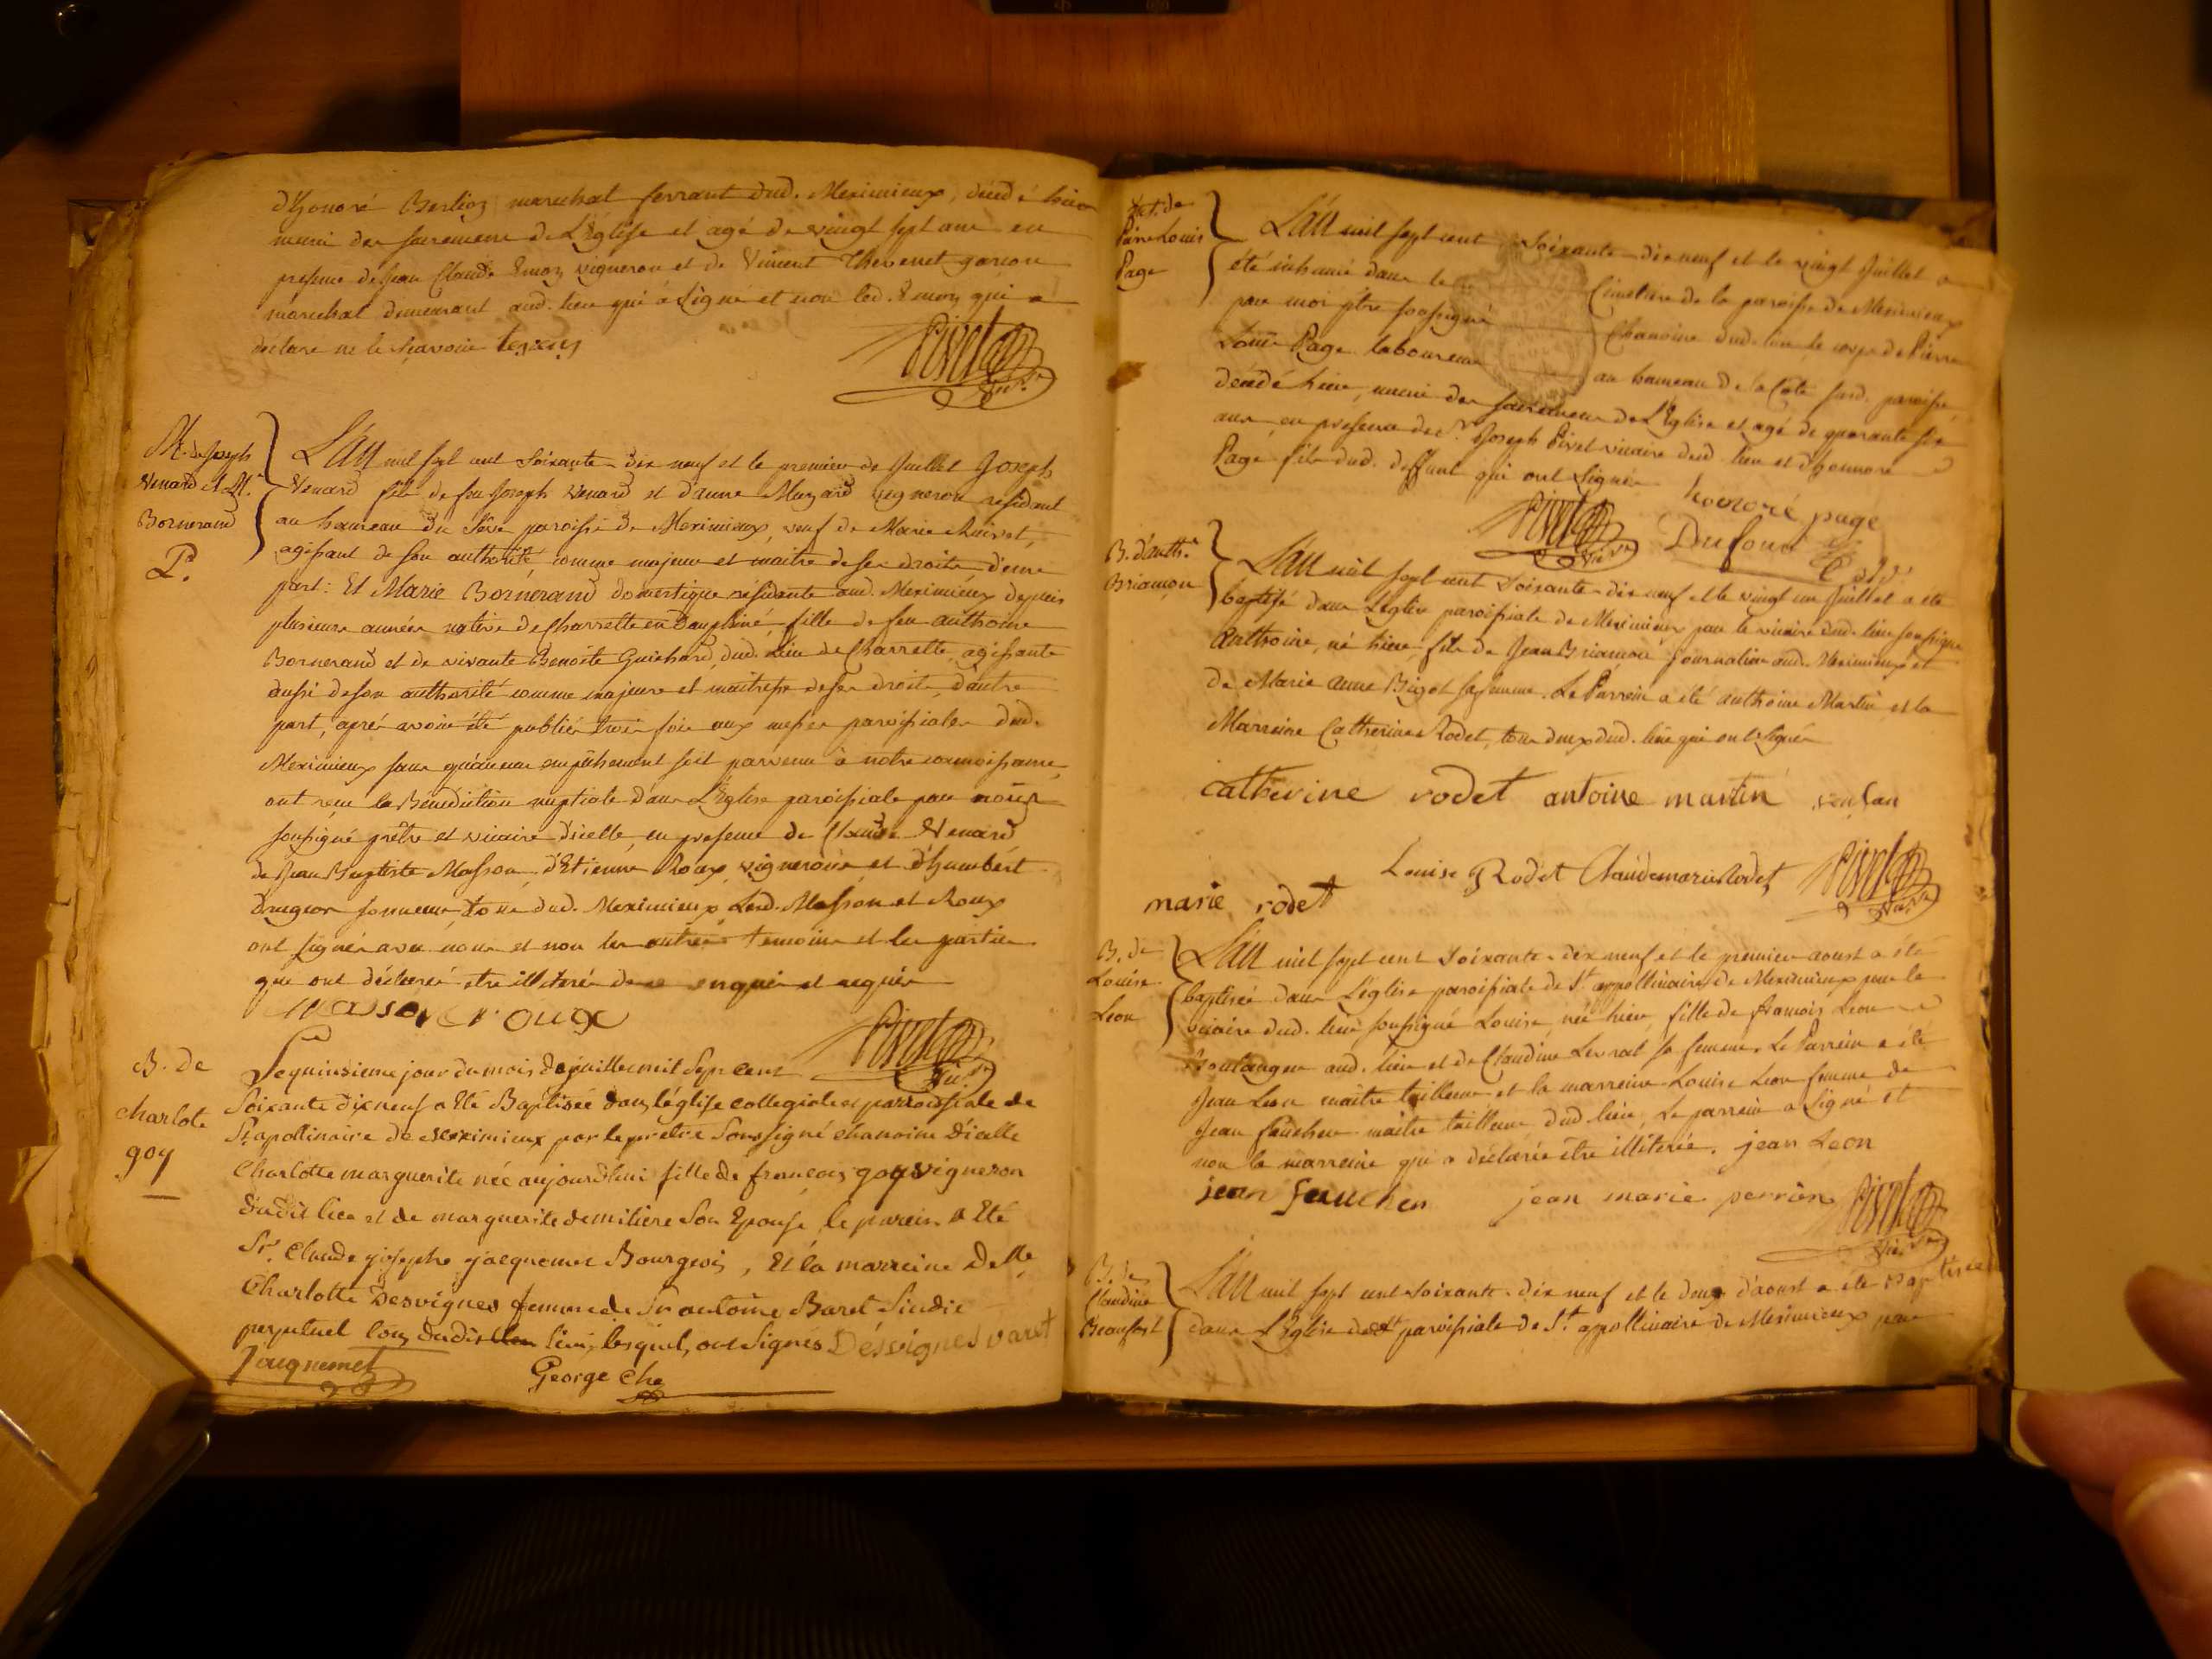 d'honoré Berlioz marechal ferrant dud. Meximieux, décédé hier
muni des sacremens de L'Eglise et agé de vingt sept ans en
presence de Jean Claude Emoz vigneron et de Vincent Thevenet garcon
maréchal demeurant aud. lieu qui a signé et non led. Emoz qui a
déclaré ne le sçavoir
Pivet
Vic.re
M. de Joseph
Venard et M.e
Bornerand
L'An mil sept cent soixante-dix neuf et le premier de Juillet Joseph
Venard fils de feu Joseph Venard et d'anne Muzard vigneron résidant
au hameau du paroisse de Meximieux, veuf de Marie
agissant de son authorité comme majeur et maitre de ses droits d'une
part: Et Marie Bornerand domestique résidante aud. Meximieux depuis
plusieurs années native de Charrette en Dauphiné, fille de feu anthoine
Bornerand et de vivante Benoite Guichard, dud. lieu de Charrette, agissante
aussi de son authorité comme majeure et maitresse de ses droits, d'autre
part, aprés avoir été publiés trois fois aux messes paroissiales dud.
Meximieux sans qu'aucun empêchement soit parvenu à notre connoissance,
ont reçu la Bénédiction nuptiale dans L'Eglise paroissiale par nous
soussigné prêtre et vicaire d'icelle, en presence de Claude Venard
de Jean Baptiste Masson, d'Etienne Roux, vignerons, et d'humbert
drugeor sonneur tous dud. Meximieux. Lesd. Masson et Roux
ont signés avec nous et non les autres temoins et les parties
qui ont déclaré etre illiterés de ce enquis et requis
Masson Roux
Pivet
Vic.re
B. de
charlote
goy
Le quinsieme jour du mois de juillet mil Sept cens
Soixante dix neuf a Eté Baptisée dans l'église collegiale et parroissiale de
St. apollinaire de Meximieux par le prétre Soussigné chanoine Dicelle
Charlotte marguerite née aujourdhui fille de françois goy vigneron
dudit lieu et de marguerite demiliere Son Epouse, le parein a Eté
Sr. Claude josephe jacquemet Bourgeois, Et la marreine Delle
Charlotte Desvignes femme de Sr antoine Baret Sindic
perpetuel tous dudit lieu, lesquels, ont Signés Désvignes varet
Jacquemet
George Che
Pierre Louis
Page
L'An mil sept cent soixante-dix neuf et le vingt Juillet a
été inhumé dans le Cimetiere de la paroisse de Meximieux
par moi ptre soussigné Chanoine dud. lieu le corps de Pierre
Louis Page laboureur au hameau de la Cote susd. paroisse
décédé hier, muni des sacremens de L'Eglise et agé de quarante six
ans, en presence de Sr. Joseph Pivet vicaire dud. lieu et d'honnore
Page fils dud. deffunt qui ont signés
honoré page
Pivet
Vic.re
Dufour
B. d'anth.e
Briamon
L'An mil sept cent soixante-dix neuf et le vingt un Juillet a été
baptisé dans L'eglise paroissiale de Meximieux par le vicaire dud. lieu soussigné
Anthoine, né hier, fils de Jean Briamon journalier aud. Meximieux et
de Marie anne Bigot sa femme. Le Parrein a été anthoine Martin et la
Marreine Catherine Rodet, tous deux dud. lieu qui ont signés
catherine rodet antoine martin
Louise Rodet Claude marie Rodet
Pivet
Vic.re
marie rodet
B. de
Louise
Leon
L'An mil sept cent soixante-dix neuf et le premier aoust a été
baptisée dans L'eglise paroissiale de St. appollinaire de Meximieux par le
vicaire dud. lieu soussigné Louise, née hier, fille de francois Leon
Boulanger aud. lieu et de Claudine Levrat sa femme. Le Parrein a été
Jean Leon maitre tailleur et la marreine Louise Leon femme de
Jean faucheu maitre tailleur dud. lieu, Le parrein a signé et
non la marreine qui a déclarée etre illiterée. jean Leon
jean faucheu jean marie perrier
Pivet
Vic.re
B. de
Claudine
Beaufort
L'An mil sept cent soixante-dix neuf et le deux d'aoust a été Baptisée
dans L'Eglise paroissiale de St. appollinaire de Meximieux par